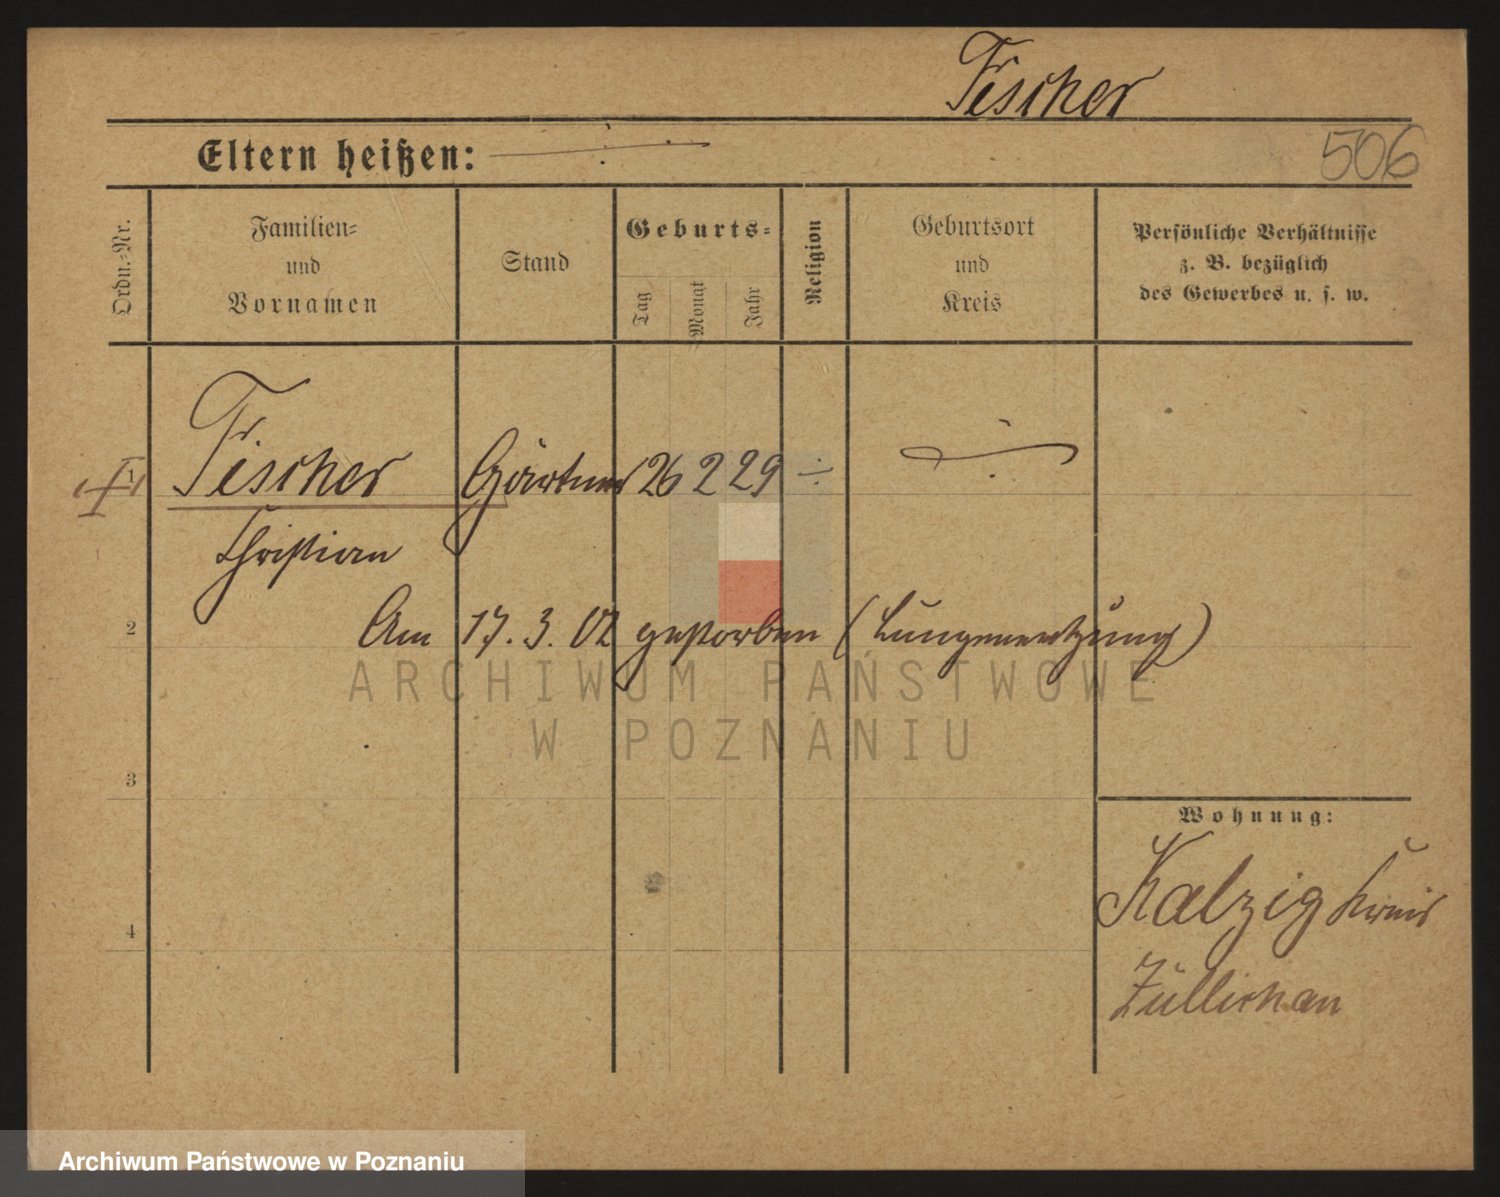 Fischer
Eltern heißen:
506
Ordn.-Nr.
Familien-
und
Vornamen
Stand
Geburts-
Tag
Monat
Jahr
Religion
Geburtsort
und
Kreis
Persönliche Verhältnisse
z. B. bezüglich
des Gewerbes u. s. w.
1 Fischer Gärtner 26 2 29
Christian
Am 17. 3. 02 gestorben (Lungenentzündung)
2
ARCHIWUM PAŃSTWOWE
W POZNANIU
3
Wohnung:
Kalzig Kreis
4
Züllichau
Archiwum Państwowe w Poznaniu